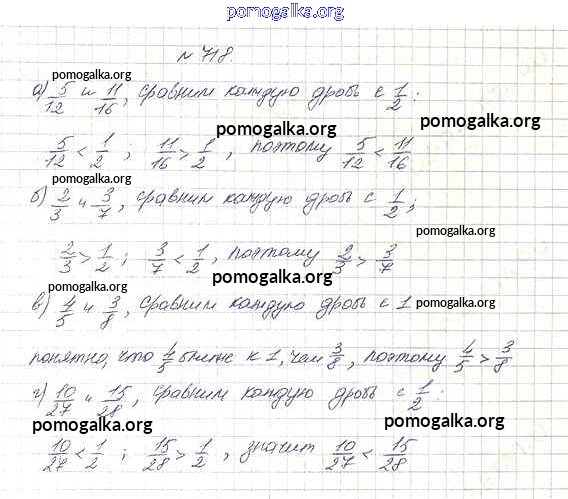 pomogalka.org
№ 718.
pomogalka.org
а) 5/12 и 11/16, сравним каждую дробь с 1/2:
pomogalka.org pomogalka.org
5/12 < 1/2 ; 11/16 > 1/2 , поэтому 5/12 < 11/16
pomogalka.org
б) 2/3 и 3/7, сравним каждую дробь с 1/2;
pomogalka.org
2/3 > 1/2 ; 3/7 < 1/2 , поэтому 2/3 > 3/7
pomogalka.org
в) 4/5 и 3/8, сравним каждую дробь с 1 pomogalka.org
понятно, что 4/5 ближе к 1, чем 3/8, поэтому 4/5 > 3/8
г) 10/27 и 15/28, сравним каждую дробь с 1/2:
pomogalka.org pomogalka.org
10/27 < 1/2 ; 15/28 > 1/2 , значит 10/27 < 15/28